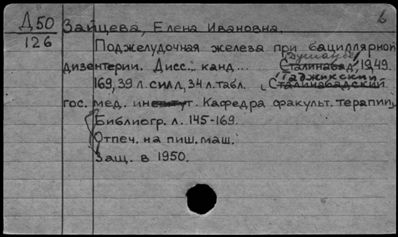 Д50 Зайцева, Елена Ивановна. 6
126 Поджелудочная железа при бациллярной
Душанбе
дизентерии. Дисс... канд... Сталинабад, 1949.
Таджикский
169, 39 л. силл, 34 л. табл. (Сталинабадский
гос. мед. институт. Кафедра факульт. терапии,
Библиогр. л. 145-169.
Отпеч. на пиш. маш.
Защ. в 1950.